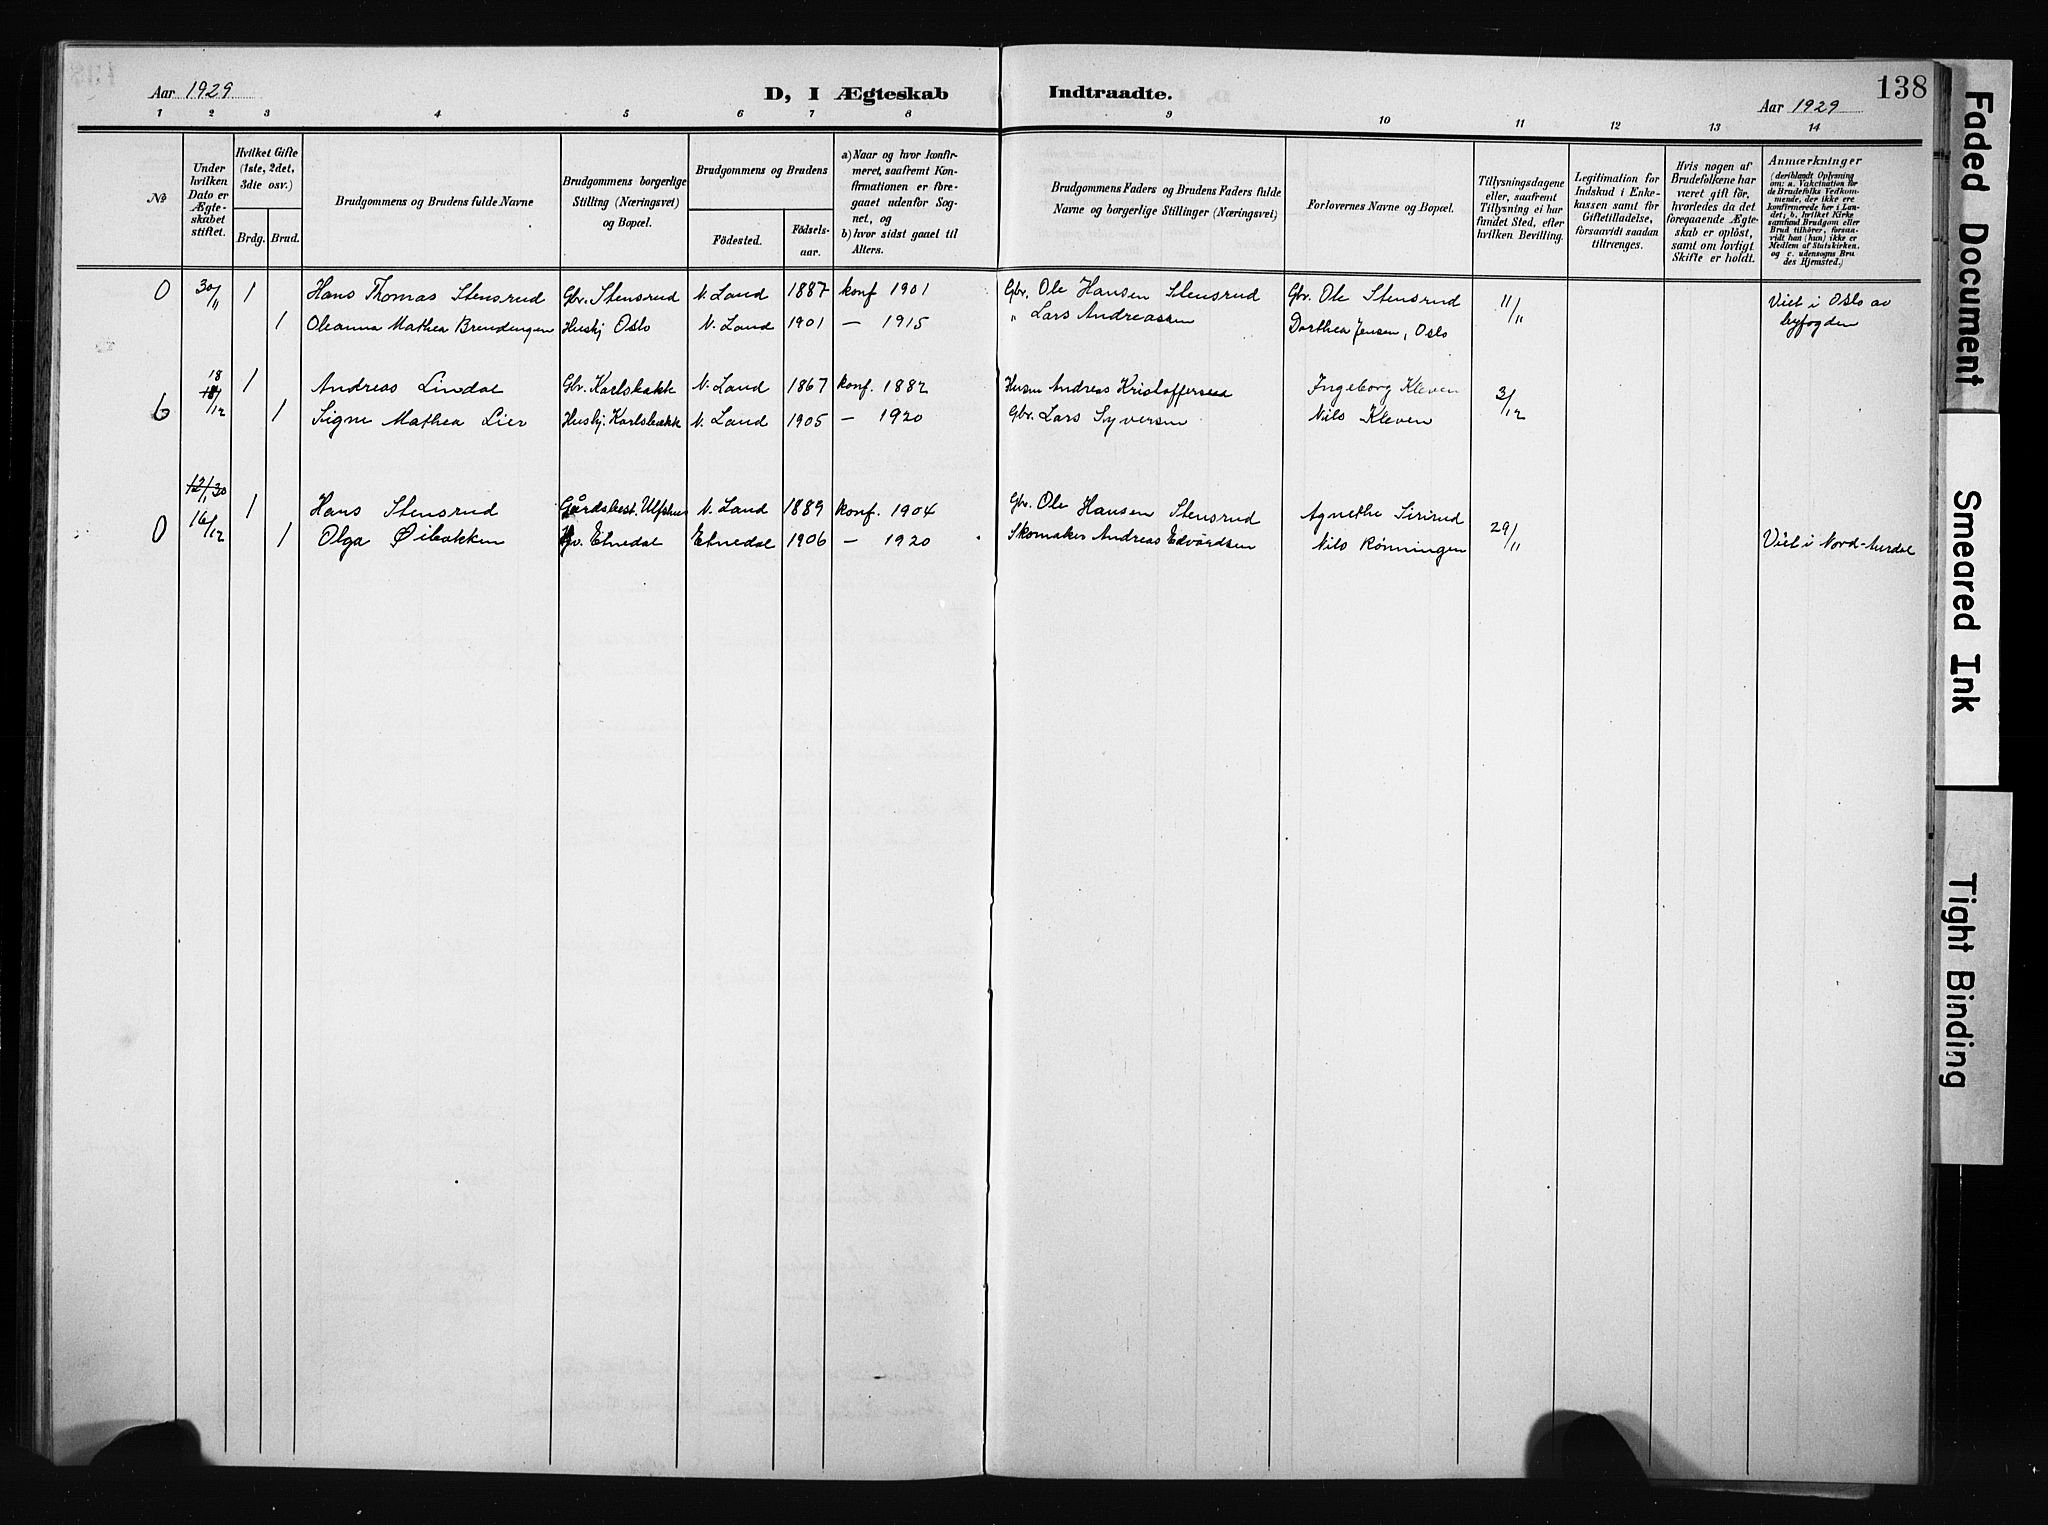 Aar 1929
D, I Ægteskab Indtraadte.
138
Aar 1929
1 2 3 4 5 6 7 8 9 10 11 12 13 14
No
Under hvilken Dato er Ægteskabet stiftet.
Hvilket Gifte (1ste, 2det, 3die osv.)
Brdg. Brud.
Brudgommens og Brudens fulde Navne
Brudgommens borgerlige Stilling (Næringsvei) og Bopæl.
Brudgommens og Brudens
Födested. Födselsaar.
a) Naar og hvor konfirmeret, saafremt Konfirmationen er foregaaet udenfor Sognet, og
b) hvor sidst gaaet til Alters.
Brudgommens Faders og Brudens Faders fulde Navne og borgerlige Stillinger (Næringsvei)
Forlovernes Navne og Bopæl.
Tillysningsdagene eller, saafremt Tillysning ei har fundet Sted, efter hvilken Bevilling.
Legitimation for Indskud i Enkekassen samt for Giftetilladelse, forsaavidt saadan tiltrænges.
Hvis nogen af Brudefolkene har været gift för, hvorledes da det foregaaende Ægteskab er oplöst, samt om lovligt Skifte er holdt.
Anmærkninger (deriblandt Oplysning om: a. Vakcination for de Brudefolks Vedkommende, der ikke ere konfirmerede her i Landet; b. hvilket Kirkesamfund Brudgom eller Brud tilhörer, forsaavidt han (hun) ikke er Medlem af Statskirken, og c. udensogns Brudes Hjemsted.)
0 30/11 1 Hans Thomas Stensrud Gbr. Stensrud N. Land 1887 konf 1901 Gbr. Ole Hansen Stensrud Gbr. Ole Stensrud 11/11 Viet i Oslo av
1 Oleanna Mathea Brendengen Huskj Oslo N. Land 1901 — 1915 " Lars Andreassen Dorthea Jensen, Oslo byfogden
18/12 1 Andreas Lindal Gbr. Karlsbakk N. Land 1867 konf. 1882 Husm Andreas Kristoffersen Ingeborg Kleven 3/12
6 1 Signe Mathea Lier Huskj. Karlsbakk N. Land 1905 — 1920 Gbr. Lars Syversen Nils Kleven
12/1 30
16/12 1 Hans Stensrud Gårdsbest. N. Land 1889 konf. 1904 Gbr. Ole Hansen Stensrud Agnethe 29/11
0 1 Olga Øibakken Etnedal Etnedal 1906 — 1920 Skomaker Andreas Edvardsen Nils Rønningen Viet i Nord-Aurdal
Faded Document
Smeared Ink
Tight Binding